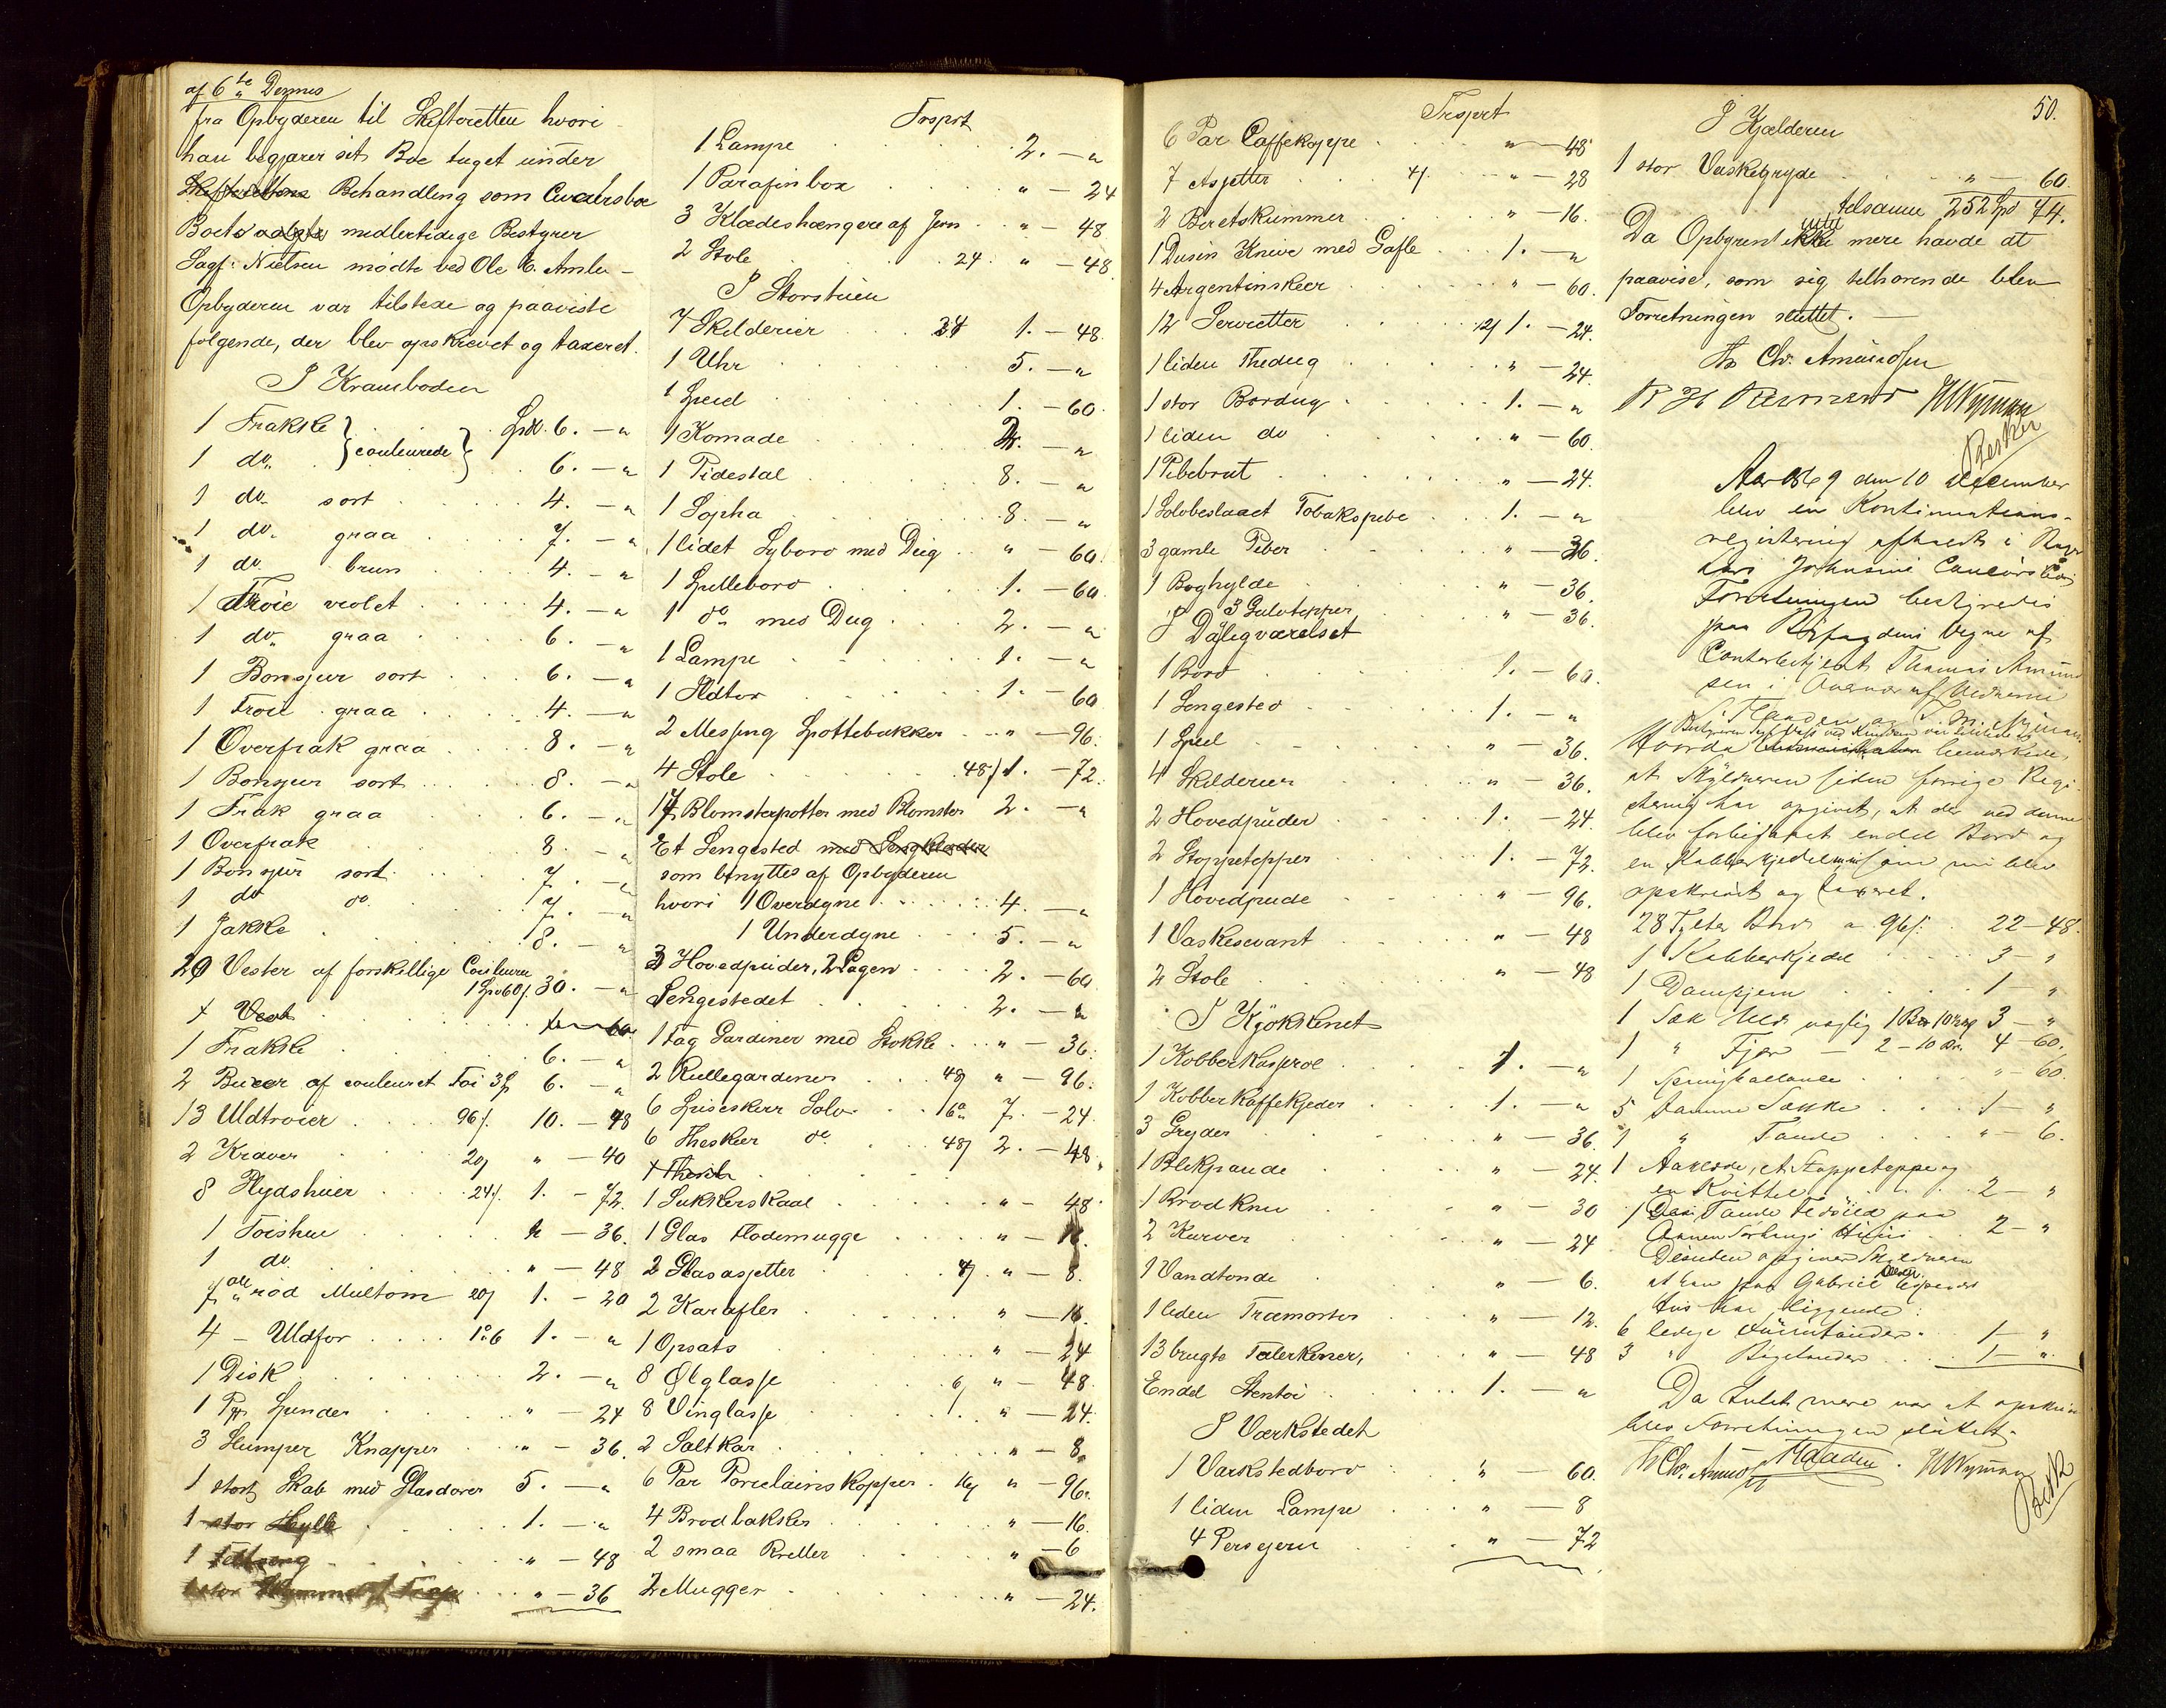 af 6te Dennes
fra Opbyderen til Skifteretten hvori
han begjærer sit Boe taget under
Skifterettens Behandling som Concursboe
Boets valgte midlertidige Bestyrer
Sagf: Nielsen mødte ved Ole E.
Opbyderen var tilstede og paaviste
følgende, der blev opskrevet og taxeret.
I Kramboden
1 Frakke } couleurede } Spd. 6. — "
1 do. 6. — "
1 do. sort 4. — "
1 do. graa 7. — "
1 do. brun 4. — "
1 Trøie violet 4. — "
1 do. graa 6. — "
1 Bonsjur sort 6. — "
1 Trøie graa 4. — "
1 Overfrak graa 8. — "
1 Bonsjur sort 8. — "
1 Frak graa 6. — "
1 Overfrak 8. — "
1 Bonsjur sort 7. — "
1 do do 7. — "
1 Jakke 8. — "
20 Vester af forskjellige Couleurer
1 Spd 60/ 30. — "
1 Vest
1 Frakke 6. — "
2 Buxer af couleuret Toi 3/ 6. — "
13 Uldtrøier 96/. 10. — 48
2 Kraver 20/ " — 40
8 Flydshuer 24/. 1. — 72.
1 Toishue " — 36.
1 do. " — 48
7 al rød Multom 20/ 1. — 20
4 — Uldfor 1°6 1. — "
1 Disk 2. — "
1 Spender " — 24
3 Slumper Knapper " — 36.
1 stort Skab med Glasdører 5. — "
1 stor Hylle 1. — "
1 " — 48
1 stor " — 36
Trsprt
1 Lampe 2. — "
1 Parafinbox " — 24
3 Klædeshængere af Jern " — 48
2 Stole 24. " — 48
I Storstuen
7 Skilderier 24 1. — 48.
1 Uhr 5. — "
1 Speil 1. — 60.
1 Komade 2. — "
1 Pidestal 8. — "
1 Sopha 8. — "
1 lidet Sybord med Dug " — 60.
1 Spillebord 1. — 60
1 do med Dug 2. — "
1 Lampe 1. — "
1 Ildtor 1. — 60
2 Messing Spottebakker " — 96.
4 Stole 48/ 1. — 72.
17 Blomsterpotter med Blomster 2. — "
Et Sengested med Sengklæder
som benyttes af Opbyderen
hvori 1 Overdyne 4. — "
1 Underdyne 5. — "
3 Hovedpuder, 2 Lagen 2. — 60
Sengestedet 2. — "
1 Fag Gardiner med Stokke " — 36.
2 Rullegardiner 48/ " — 96.
6 Spiseskeer Sølv 7. — 24.
6 Theskeer do. 48/ 2. — 48
1 Thesil
1 Sukkerskaal " — 48.
1 Glas Flødemugge " — 16.
2 Glasasjetter 4/ " — 8.
2 Karafler " — 16.
1 Opsats " — 24
8 Ølglasse 6/ " — 48.
8 Vinglasse " — 24.
2 Saltkar " — 8.
6 Par Porcelainskopper 16/ " — 96.
4 Brødbakker " — 16.
2 smaa " — 6
2 Mugger " — 24.
Trsprt
6 Par Caffekoppe " — 48
7 Asjetter 4/. " — 28
2 Beretskummer " — 16.
1 Dusin Knive med Gafle 1. — "
4 Argentinskeer " — 60.
12 Servietter 12/ 1. — 24.
1 liden Thedug " — 24.
1 stor Bordug 1. — "
1 liden do " — 60.
1 Pibebræt " — 24.
1 Sølvbeslaaet Tobakspibe 1. — "
3 gamle Piber " — 36.
1 Boghylde " — 36.
3 Gulvtepper " — 36.
I Dagligværelset
1 Bord 1. — 60.
1 Sengested 1. — "
1 Speil " — 36.
4 Skilderier " — 36.
2 Hovedpuder 1. — 24.
2 Stoppetepper 1. — 72.
1 Hovedpude " — 96.
1 Vaskeservant " — 48
2 Stole " — 48
I Kjøkkenet
1 Kobberkasserol 1. — "
1 Kobberkaffekjedel 1. — "
3 Gryder " — 36.
1 Blekpande " — 24.
1 Brødkniv " — 30
2 Kurver " — 24
1 Vandtønde " — 6.
1 liden Træmorter " — 12.
13 brugte Talerkener, " — 48
Endel Stentøi 1. — "
I Værkstedet
1 Værkstedbord " — 60.
1 liden Lampe " — 8
4 Persejern " — 72
50.
I Kjælderen
1 stor Vaskegryde " — 60.
tilsamm 252 Spd 74.
Da Opbyderen ikke mere havde at
paavise, som sig tilhørende blev
Forretningen sluttet. —
Th Chr. Amundsen
Aar 1869 den 10 December
blev en Kontinuations-
registrering afholdt i
Concursbo
Forretningen bestyredes
paa Byfogdens Vegne af
Contorbetjent Thomas Amund
sen i Overvær af Vidnerne
Hvorda bemærkede,
at Skyldneren siden forrige Regi-
strering har opgivet, at der ved denne
blev forbigaaet endel Bord og
en Kobberkjedel som nu blev
opskrevet og taxeret.
28 Tylter Bord a 96/. 22 — 48.
1 Kobberkjedel 3 — "
1 1 — "
1 Sæk Uld vægtig 3 — "
1 " Fjær — 4 — 60.
1 " — 60.
5 tomme Sække 1 — "
1 " Tønde " — 6.
1 Aaklæde, et Stoppeteppe og
en Kvittel 2 — "
1 Tønde
2 — "
Desuden opgiver Skyldneren
at han paa Gabriel
har liggende:
6 ledige 1 — "
3 " 1 — "
Da Intet mere var at opskrive
blev Forretningen sluttet.
Th Chr. Amundsen